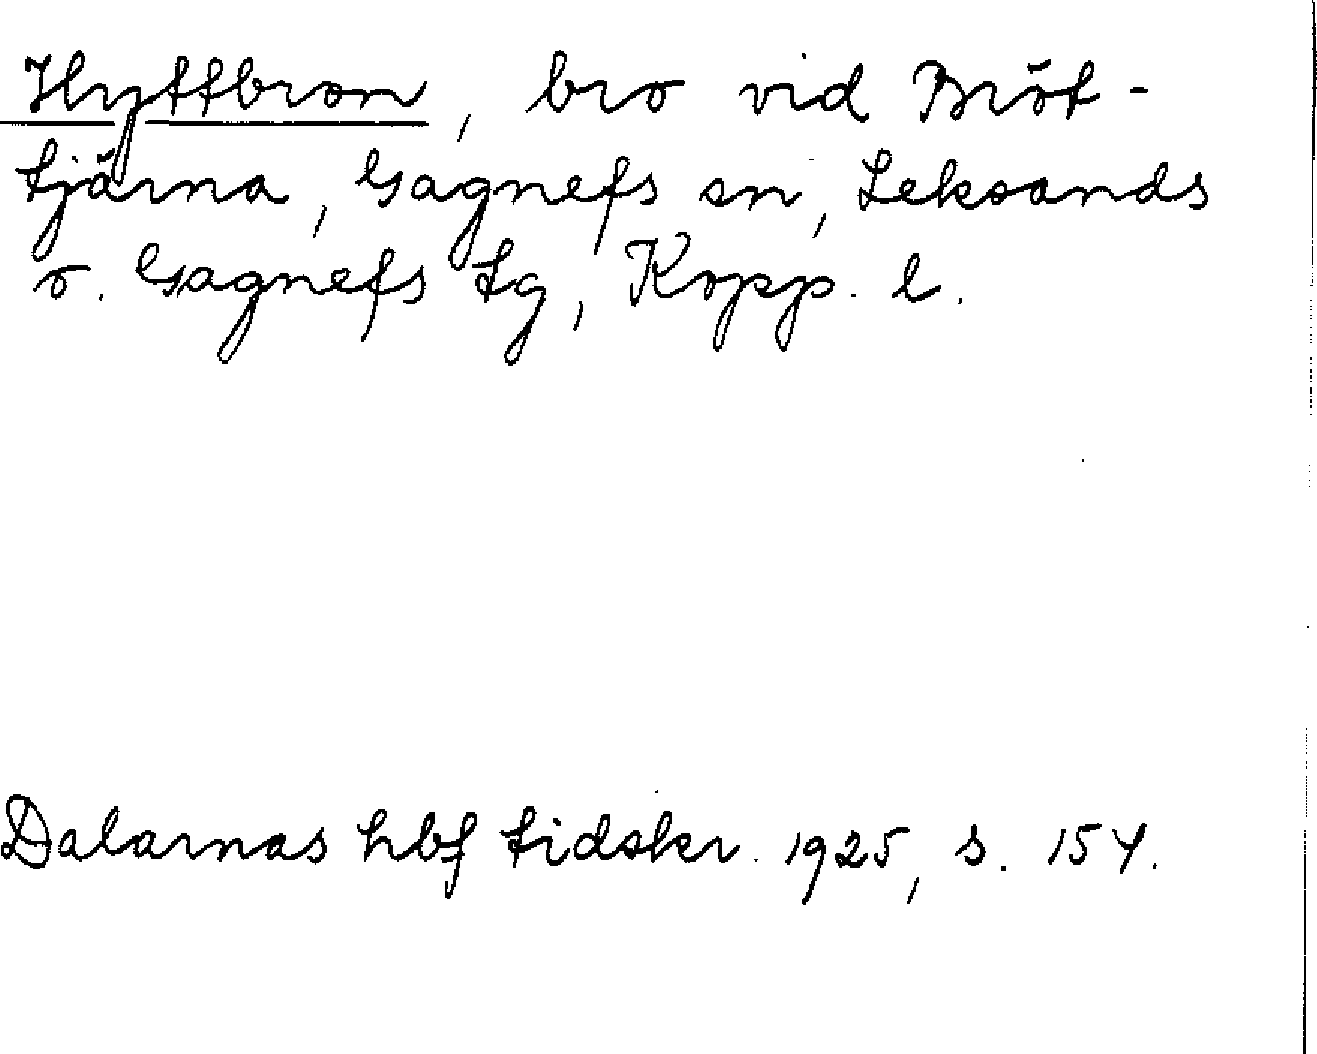 Hyttbron, bro vid Bröt-
tjärna, Gagnefs sn, Leksands
o. Gagnefs tg, Kopp. l.
Dalarnas hbf tidskr. 1925, s. 154.